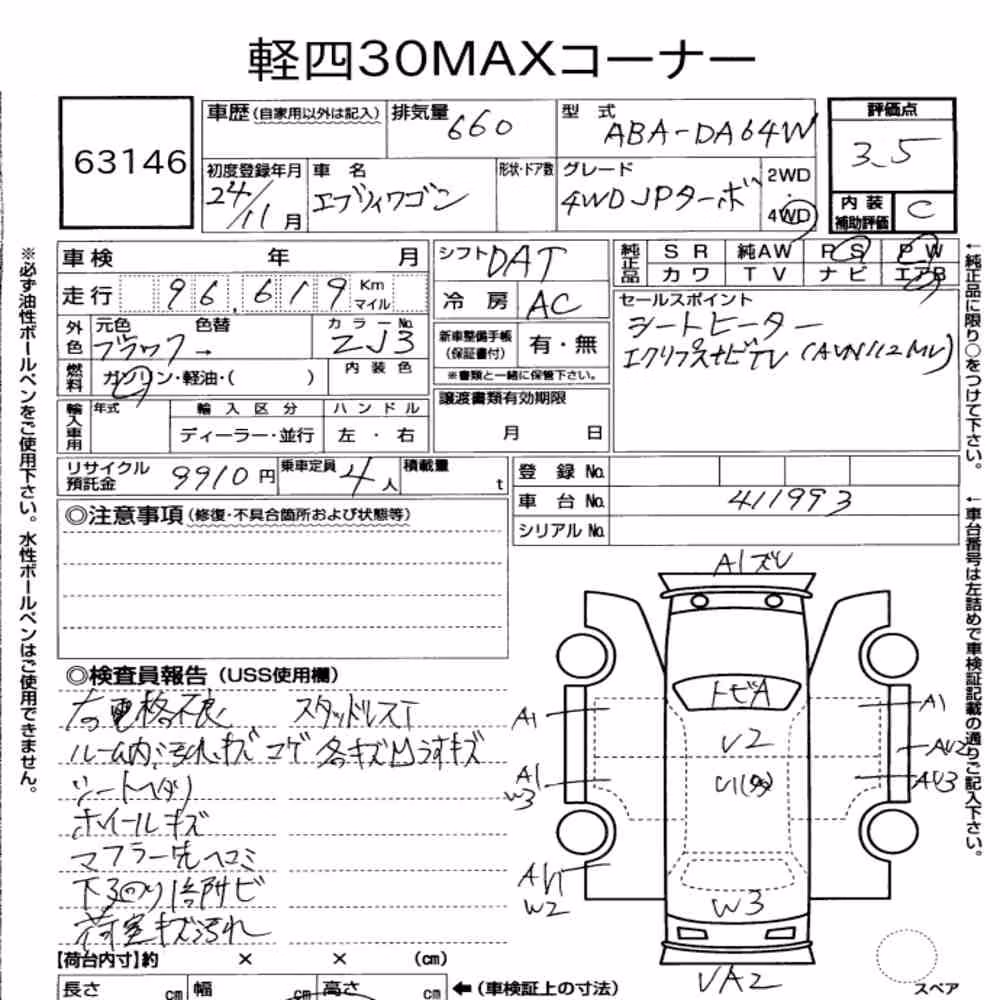 軽四30MAXコーナー
63146
車歴(自家用以外は記入)
排気量 660
型式 ABA-DA64W
評価点 3.5
初度登録年月 24/11月
車名 エブリィワゴン
形状・ドア数
グレード 4WD JPターボ
2WD
・
4WD
内装補助評価 C
車検 年 月
シフト DAT
純正品 SR 純AW PS PW
カワ TV ナビ エアB
走行 96,619 Km マイル
冷房 AC
セールスポイント
シートヒーター
エクリプスナビTV (AVN112MV)
外色 元色 色替 カラーNo.
ブラック → ZJ3
新車整備手帳(保証書付) 有・無
※書類と一緒に保管下さい。
燃料 ガソリン・軽油・( ) 内装色
譲渡書類有効期限
月 日
輸入車用 年式 輸入区分 ハンドル
ディーラー・並行 左・右
リサイクル預託金 9910円 乗車定員 4人 積載量 t
登録No.
車台No. 411993
シリアルNo.
◎注意事項(修復・不具合箇所および状態等)
◎検査員報告(USS使用欄)
右電格不良 スタッドレスT
ルーム内汚れキズコゲ 各キズ凹うすキズ
シートヘタリ
ホイールキズ
マフラー先ヘコミ
荷室キズ汚れ
A1ズレ
トビA
A1
A1
U2
AU2
A1
W3
U1(多)
AU3
W2
W3
UA2
スペア
【荷台内寸】約 × × (cm)
長さ cm 幅 cm 高さ cm
←(車検証上の寸法)
※必ず油性ボールペンをご使用下さい。水性ボールペンはご使用できません。
←純正品に限り○をつけて下さい。
←車台番号は左詰めで車検証記載の通りご記入下さい。